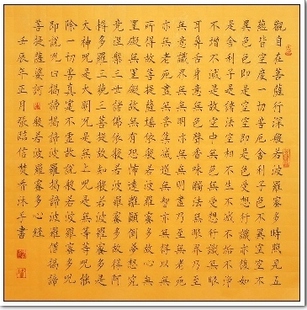 觀自在菩薩行深般若波羅蜜多時照見五
蘊皆空度一切苦厄舍利子色不異空空不
異色色即是空空即是色受想行識亦復如
是舍利子是諸法空相不生不滅不垢不淨
不增不減是故空中無色無受想行識無眼
耳鼻舌身意無色聲香味觸法無眼界乃至
無意識界無無明亦無無明盡乃至無老死
亦無老死盡無苦集滅道無智亦無得以無
所得故菩提薩埵依般若波羅蜜多故心無
罣礙無罣礙故無有恐怖遠離顛倒夢想究
竟涅槃三世諸佛依般若波羅蜜多故得阿
耨多羅三藐三菩提故知般若波羅蜜多是
大神咒是大明咒是無上咒是無等等咒能
除一切苦真實不虛故說般若波羅蜜多咒
即說咒曰揭諦揭諦波羅揭諦波羅僧揭諦
菩提薩婆訶 般若波羅蜜多心經
壬辰年正月張信焚香沐手書